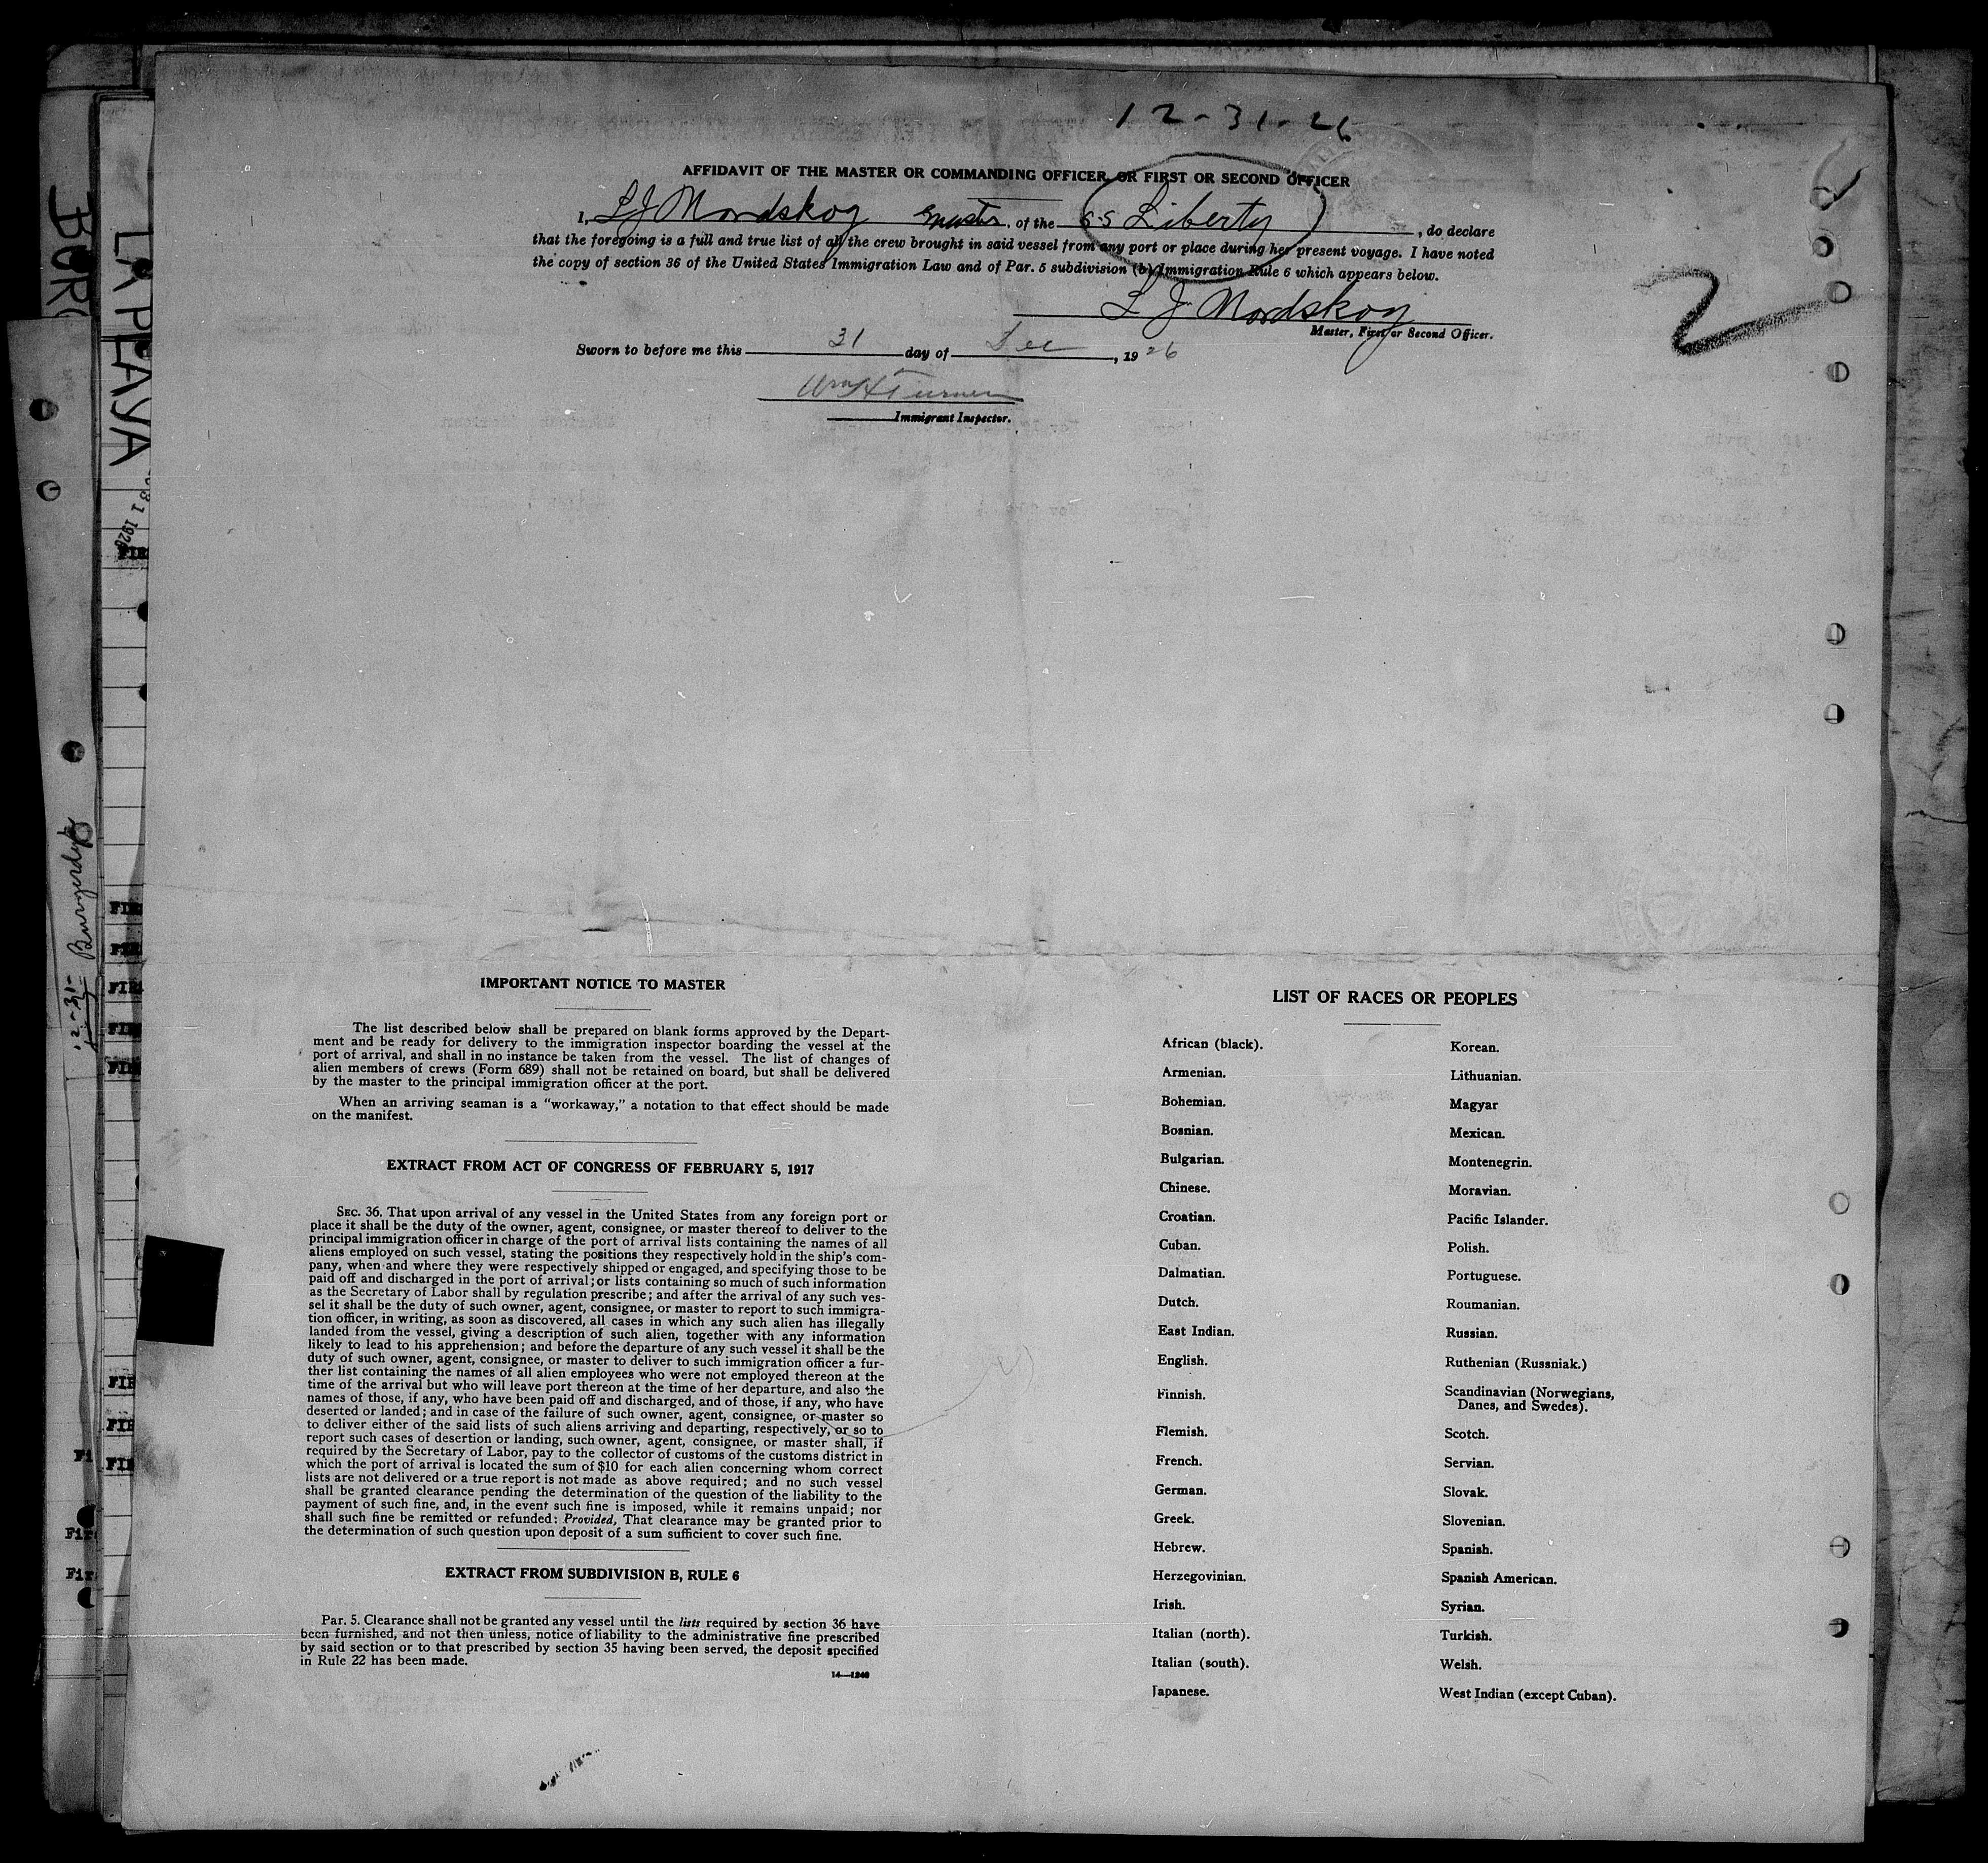 12-31-26
AFFIDAVIT OF THE MASTER OR COMMANDING OFFICER, OR FIRST OR SECOND OFFICER
I, L J Nordskog master, of the SS Liberty, do declare
that the foregoing is a full and true list of all the crew brought in said vessel from any port or place during her present voyage. I have noted
the copy of section 36 of the United States Immigration Law and of Par. 5 subdivision (b) Immigration Rule 6 which appears below.
L J Nordskog
Master, First or Second Officer.
2
Sworn to before me this 31 day of Dec, 1926
Wm H Turner
Immigrant Inspector.
LA PLAYA
12-31-
IMPORTANT NOTICE TO MASTER
The list described below shall be prepared on blank forms approved by the Depart-
ment and be ready for delivery to the immigration inspector boarding the vessel at the
port of arrival, and shall in no instance be taken from the vessel. The list of changes of
alien members of crews (Form 689) shall not be retained on board, but shall be delivered
by the master to the principal immigration officer at the port.
When an arriving seaman is a “workaway,” a notation to that effect should be made
on the manifest.
EXTRACT FROM ACT OF CONGRESS OF FEBRUARY 5, 1917
SEC. 36. That upon arrival of any vessel in the United States from any foreign port or
place it shall be the duty of the owner, agent, consignee, or master thereof to deliver to the
principal immigration officer in charge of the port of arrival lists containing the names of all
aliens employed on such vessel, stating the positions they respectively hold in the ship's com-
pany, when and where they were respectively shipped or engaged, and specifying those to be
paid off and discharged in the port of arrival; or lists containing so much of such information
as the Secretary of Labor shall by regulation prescribe; and after the arrival of any such ves-
sel it shall be the duty of such owner, agent, consignee, or master to report to such immigra-
tion officer, in writing, as soon as discovered, all cases in which any such alien has illegally
landed from the vessel, giving a description of such alien, together with any information
likely to lead to his apprehension; and before the departure of any such vessel it shall be the
duty of such owner, agent, consignee, or master to deliver to such immigration officer a fur-
ther list containing the names of all alien employees who were not employed thereon at the
time of the arrival but who will leave port thereon at the time of her departure, and also the
names of those, if any, who have been paid off and discharged, and of those, if any, who have
deserted or landed; and in case of the failure of such owner, agent, consignee, or master so
to deliver either of the said lists of such aliens arriving and departing, respectively, or so to
report such cases of desertion or landing, such owner, agent, consignee, or master shall, if
required by the Secretary of Labor, pay to the collector of customs of the customs district in
which the port of arrival is located the sum of $10 for each alien concerning whom correct
lists are not delivered or a true report is not made as above required; and no such vessel
shall be granted clearance pending the determination of the question of the liability to the
payment of such fine, and, in the event such fine is imposed, while it remains unpaid; nor
shall such fine be remitted or refunded: Provided, That clearance may be granted prior to
the determination of such question upon deposit of a sum sufficient to cover such fine.
EXTRACT FROM SUBDIVISION B, RULE 6
Par. 5. Clearance shall not be granted any vessel until the lists required by section 36 have
been furnished, and not then unless, notice of liability to the administrative fine prescribed
by said section or to that prescribed by section 35 having been served, the deposit specified
in Rule 22 has been made.
14—1240
LIST OF RACES OR PEOPLES
African (black).
Armenian.
Bohemian.
Bosnian.
Bulgarian.
Chinese.
Croatian.
Cuban.
Dalmatian.
Dutch.
East Indian.
English.
Finnish.
Flemish.
French.
German.
Greek.
Hebrew.
Herzegovinian.
Irish.
Italian (north).
Italian (south).
Japanese.
Korean.
Lithuanian.
Magyar
Mexican.
Montenegrin.
Moravian.
Pacific Islander.
Polish.
Portuguese.
Roumanian.
Russian.
Ruthenian (Russniak.)
Scandinavian (Norwegians,
Danes, and Swedes).
Scotch.
Servian.
Slovak.
Slovenian.
Spanish.
Spanish American.
Syrian.
Turkish.
Welsh.
West Indian (except Cuban).